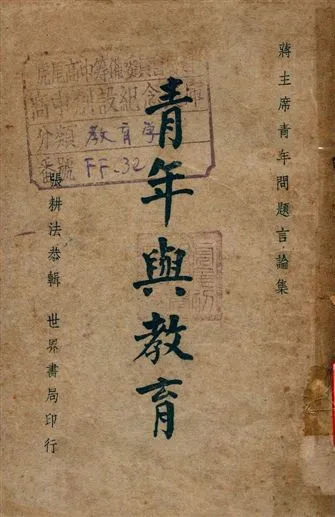 蔣主席青年問題言論集
青年與教育
張耕法恭輯 世界書局印行
虎尾高中籌備委員會
高中創設紀念
分類 教育學
番號 FF-32